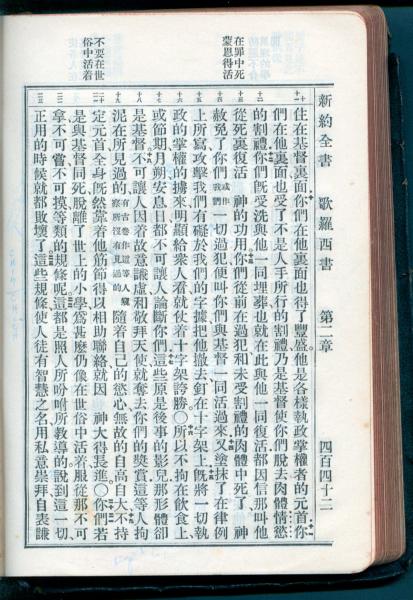 新約全書 歌羅西書 第二章 四百四十二
在罪中死
蒙恩得活
不要在世
俗中活着
住在基督裏面你們在他裏面也得了豐盛他是各樣執政掌權者的元首你
們在他裏面也受了不是人手所行的割禮乃是基督使你們脫去肉體情慾
的割禮你們旣受洗與他一同埋葬也就在此與他一同復活都因信那叫他
從死裏復活 神的功用你們從前在過犯和未受割禮的肉體中死了 神
赦免了你們或作我們一切過犯便叫你們與基督一同活過來又塗抹了在律例
上所寫攻擊我們有礙於我們的字據把他撤去釘在十字架上旣將一切執
政的掌權的擄來明顯給衆人看就仗着十字架誇勝○所以不拘在飲食上
或節期月朔安息日都不可讓人論斷你們這些原是後事的影兒那形體卻
是基督不可讓人因着故意謙虛和敬拜天使就奪去你們的獎賞這等人拘
泥在所見過的有古卷作這等人窺察所沒有見過的隨着自己的慾心無故的自高自大不持
定元首全身旣然靠着他筋節得以相助聯絡就因 神大得長進○你們若
是與基督同死脫離了世上的小學爲甚麽仍像在世俗中活着服從那不可
拿不可嘗不可摸等類的規條呢這都是照人所吩咐所教導的說到這一切
正用的時候就都敗壞了這些規條使人徒有智慧之名用私意崇拜自表謙